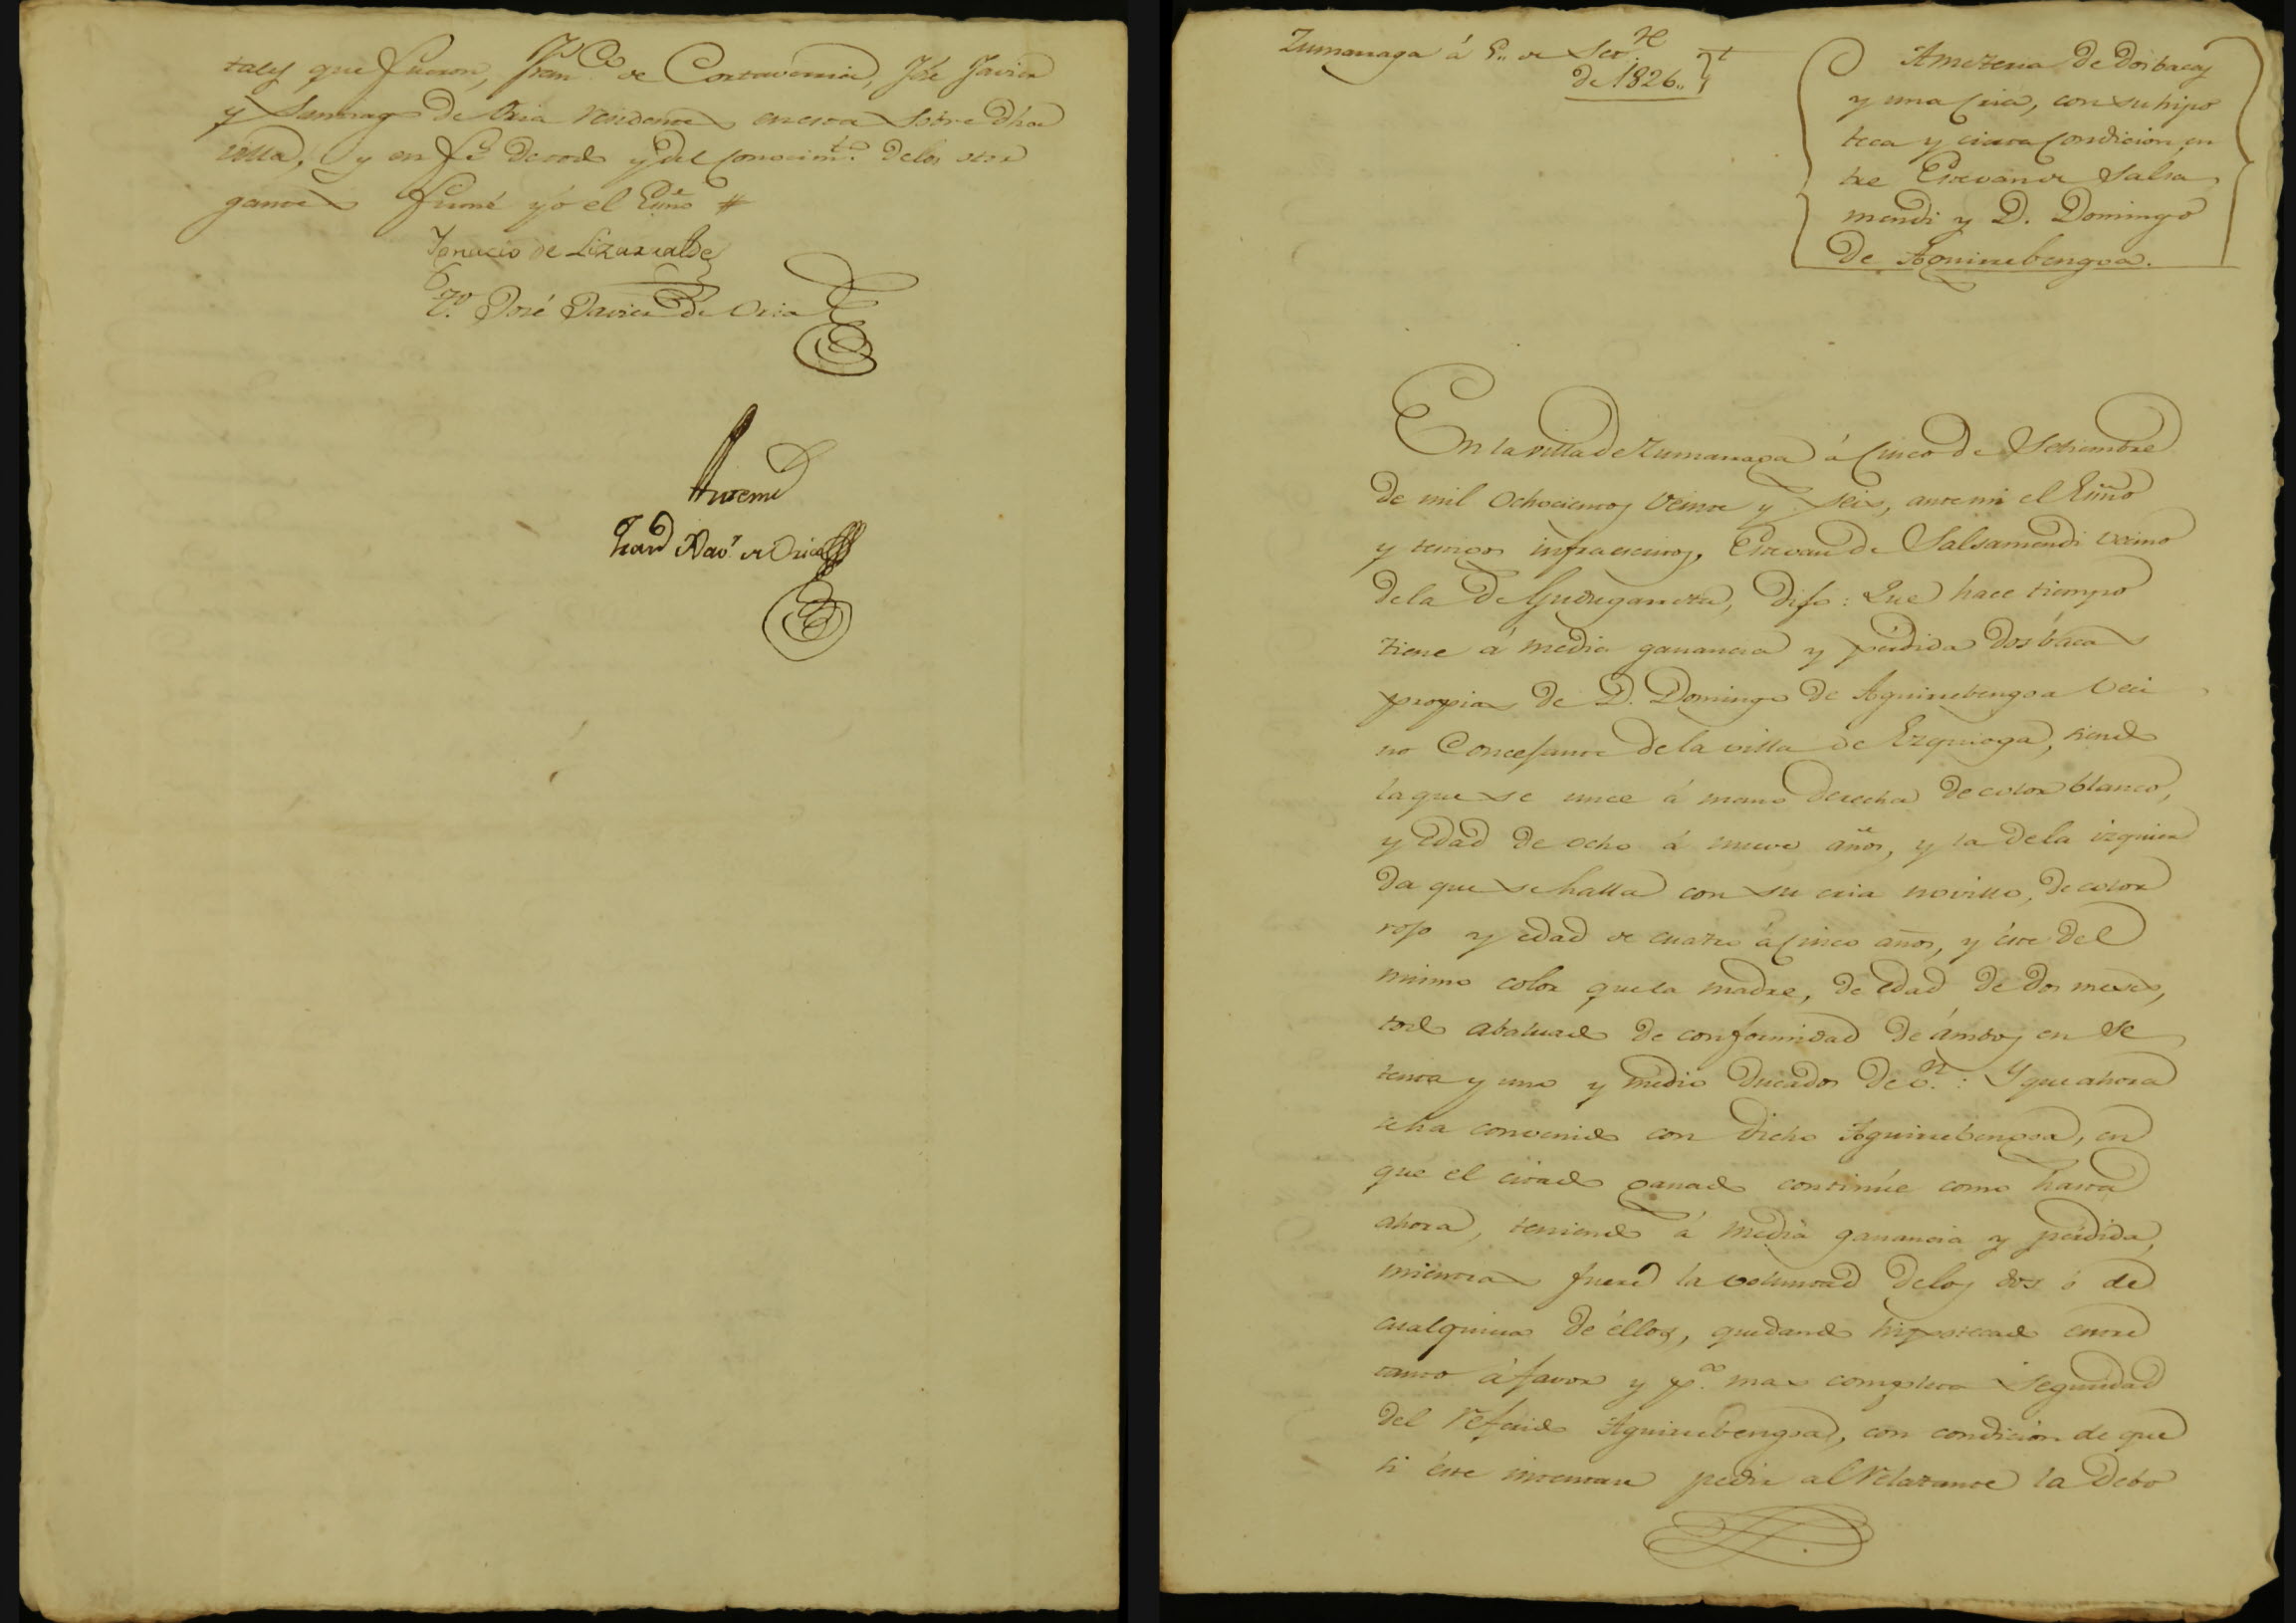 tales que fueron, Fran.co de Cortaverria, José Javier
y Santiago de Oria residentes en esta sobre dha
villa, y en fé de todo y del conocim.to de los otor
gantes firmé yó el Esñno #
Ignacio de Lizarralde
T.o José Javier de Oria
Antemi
Juan Xav.r de Oria
Zumarraga á 5,, de Set.re
de 1826,,
Ameteria de dos bacas
y una cria, con su hipo
teca y cierta condicion, en
tre Estevan de Salsa
mendi y D. Domingo
de Aguirrebengoa.
En la villa de Zumarraga á cinco de Setiembre
de mil ochocientos veinte y seis, ante mi el Esñno
y testigos infraescritos, Estevan de Salsamendi vecino
de la de Gudugarreta, dijo: Que hace tiempo
tiene á media ganancia y pérdida dos bacas
propias de D. Domingo de Aguirrebengoa veci
no Concejante de la villa de Ezquioga, siendo
la que se unce á mano derecha de color blanco,
y edad de ocho á nueve años, y la de la izquier
da que se halla con su cria novillo, de color
rojo y edad de cuatro á cinco años, y éste del
mismo color que la madre, de edad de dos meses,
todo abaluado de conformidad de ámbos en se
tenta y uno y médio ducados de v.n: Y que ahora
se ha convenido con dicho Aguirrebengoa, en
que el citado ganado continúe como hasta
ahora, teniendo á media ganancia y pérdida,
mientras fuere la voluntad de los dos ó de
cualquiera de éllos, quedando hipotecado entre
tanto á favor y p.a mas completa seguridad
del referido Aguirrebengoa, con condicion de que
si éste intentare pedir al relatante la debo